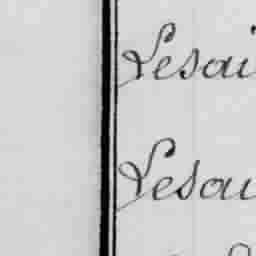 Lesai
Lesai